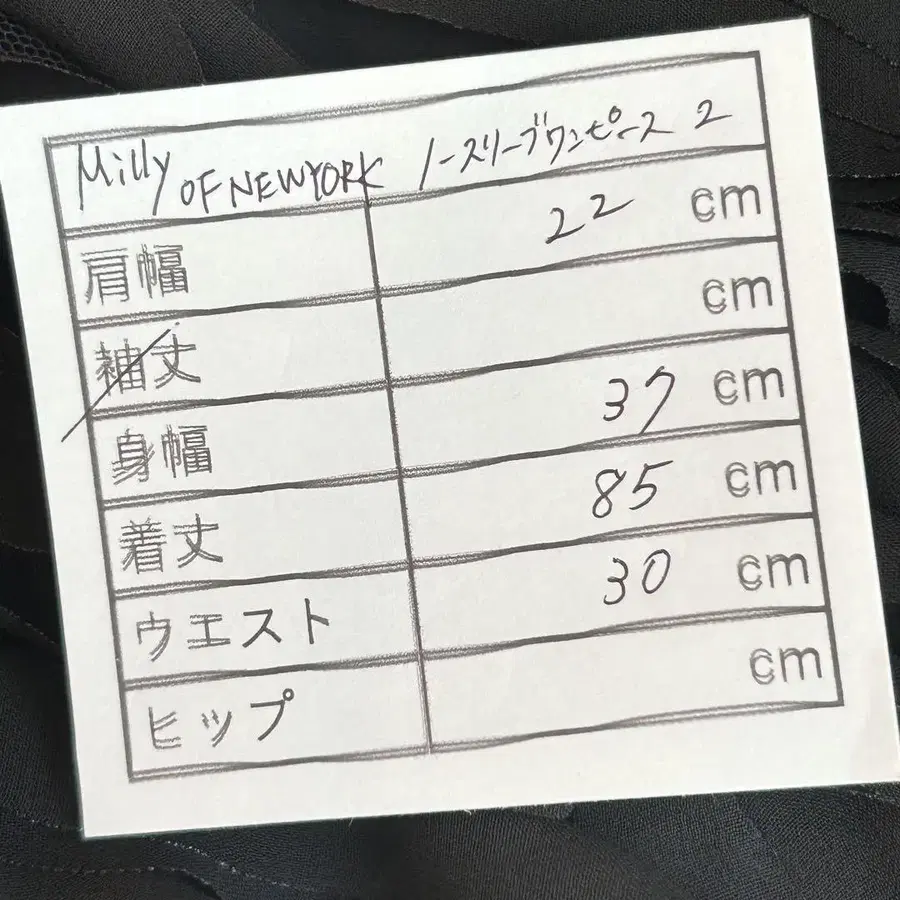 Milly OF NEWYORK ノースリーブワンピース 2
肩幅 22 cm
袖丈 cm
身幅 37 cm
着丈 85 cm
ウエスト 30 cm
ヒップ cm